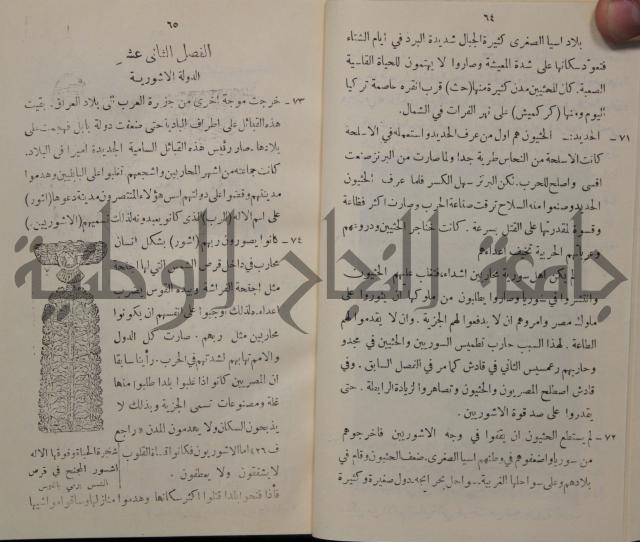 ٦٤
بلاد اسيا الصغرى كثيرة الجبال شديدة البرد في أيام الشتاء
فتعود سكانها على شدة المعيشة وصاروا لا يهتمون للحياة القاسية
الصعبة. كان للحثيين مدن كثيرة منها (حث) قرب انقره عاصمة تركيا
اليوم ومنها (كركميش) على نهر الفرات في الشمال.
٧١ - الحديد:- الحثيون هم اول من عرف الحديد واستعمله في الاسلحة
كانت الاسلحة من النحاس طرية جدا ولما صارت من البرنز صنعت
اقسى واصلح للحرب. لكن البرنز سهل الكسر فلما عرف الحثيون
الحديد وصنعوا منه السلاح ترقت صناعة الحرب وصارت اكثر فظاعة
وقسوة لمقدرتها على القتل بسرعة. كانت خناجر الحثيين ودروعهم
وعرباتهم الحربية تخيف اعداءهم
لم يكن اهل سورية محاربين اشداء، فتغلب عليهم الحثيون
وانتشروا في سوريا وصاروا يطلبون من ملوكها ان يثوروا على
ملوك مصر وامروهم ان لا يدفعوا لهم الجزية. وان لا يقدموا لهم
الطاعة. لهذا السبب حارب تطميس السوريين والحثيين في مجدو
وحاربهم رعمسيس الثاني في قادش كما مر في الفصل السابق. وفي
قادش اصطلح المصريون والحثيون وتصاهروا لزيادة الرابطة. حتى
يقدروا على صد قوة الاشوريين.
٧٢ - لم يستطع الحثيون ان يقفوا في وجه الاشوريين فاخرجوهم
من سوريا واضعفوهم في وطنهم اسيا الصغرى. ضعف الحثيون وقام في
بلادهم وعلى سواحلها الغربية. سواحل بحر ايجه دول صغيرة وكثيرة
٦٥
الفصل الثاني عشر
الدولة الاشورية
٧٣ - خرجت موجة اخرى من جزيرة العرب الى بلاد العراق. بقيت
هذه القبائل على اطراف البادية حتى ضعفت دولة بابل فهجمت على
بلادها. صار رئيس هذه القبائل السامية الجديدة اميرا في البلاد.
كانت جماعته من اشهر المحاربين واشجعهم تغلبوا على البابليين وهدموا
مدينتهم وقضوا على دولتهم اسس هؤلاء المنتصرون مدينة دعوها (اشور)
على اسم الاله (الرب) الذي كانوا يعبدونه لذلك نسميهم (الاشوريين.)
٧٤ - كانوا يصورون ربهم (اشور) بشكل انسان
محارب في داخل قرص الشمس التي لها اجنحة
مثل اجنحة الفراشة وبيده القوس يضرب
اعداءه. لذلك اوجبوا على انفسهم ان يكونوا
محاربين مثل ربهم. صارت كل الدول
والامم تهابهم لشدتهم في الحرب. رأينا سابقا
ان المصريين كانوا اذا غلبوا بلدا طلبوا منها
غلة ومصنوعات تسمى الجزية وبذلك لا
يذبحون السكان ولا يهدمون المدن «راجع
ف ٢٦» اما الاشوريون فكانوا قساة القلوب
لا يشفقون ولا يعطفون.
فأذا فتحوا بلدا قتلوا اكثر سكانها وهدموا منازلها وساقوا مواشيها
شجرة الحياة وفوقها الاله
اشور المجنح في قرص
الشمس يرمي بالقوس
جامعة النجاح الوطنية